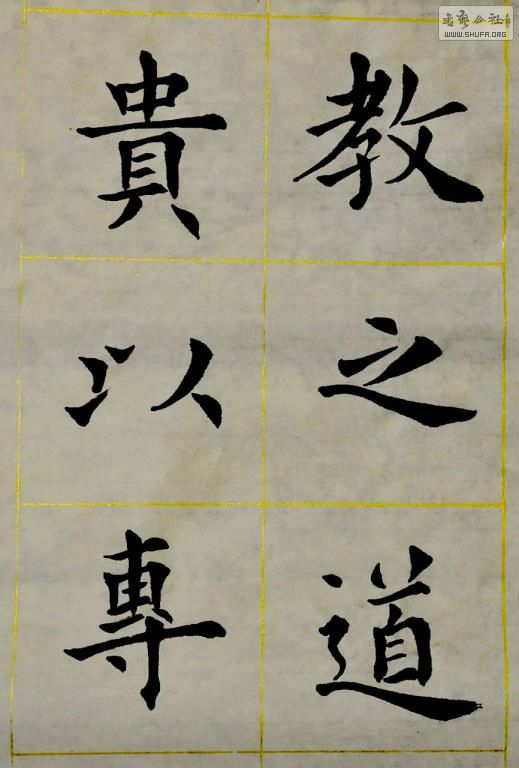 教之道
貴以專
書藝公社
WWW.SHUFA.ORG